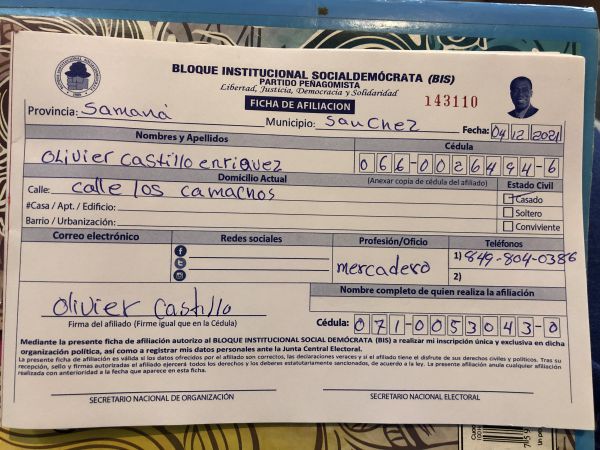 BLOQUE INSTITUCIONAL SOCIALDEMÓCRATA (BIS)
PARTIDO PEÑAGOMISTA
Libertad, Justicia, Democracia y Solidaridad
FICHA DE AFILIACION
143110
Provincia: Samaná Municipio: Sanchez Fecha: 04 12 2021
Nombres y Apellidos Cédula
Olivier Castillo enriquez 066-0026494-6
Domicilio Actual (Anexar copia de cédula del afiliado) Estado Civil
Calle: Calle los camachos Casado
#Casa / Apt. / Edificio: Soltero
Barrio / Urbanización: Conviviente
Correo electrónico Redes sociales Profesión/Oficio Teléfonos
mercadero 1) 849-804-0386
2)
Nombre completo de quien realiza la afiliación
Olivier Castillo
Firma del afiliado (Firme igual que en la Cédula) Cédula: 071-0053043-0
Mediante la presente ficha de afiliación autorizo al BLOQUE INSTITUCIONAL SOCIAL DEMÓCRATA (BIS) a realizar mi inscripción única y exclusiva en dicha
organización política, así como a registrar mis datos personales ante la Junta Central Electoral.
La presente ficha de afiliación es válida si los datos ofrecidos por el afiliado son correctos, las declaraciones veraces y si el afiliado tiene el disfrute de sus derechos civiles y políticos. Tras su
recepción, sello y firmas autorizadas el afiliado ejercerá todos los derechos y los deberes estatutariamente sancionados, de acuerdo a la ley. La presente afiliación anula cualquier afiliación
realizada con anterioridad a la fecha que aparece en esta ficha.
SECRETARIO NACIONAL DE ORGANIZACIÓN SECRETARIO NACIONAL ELECTORAL